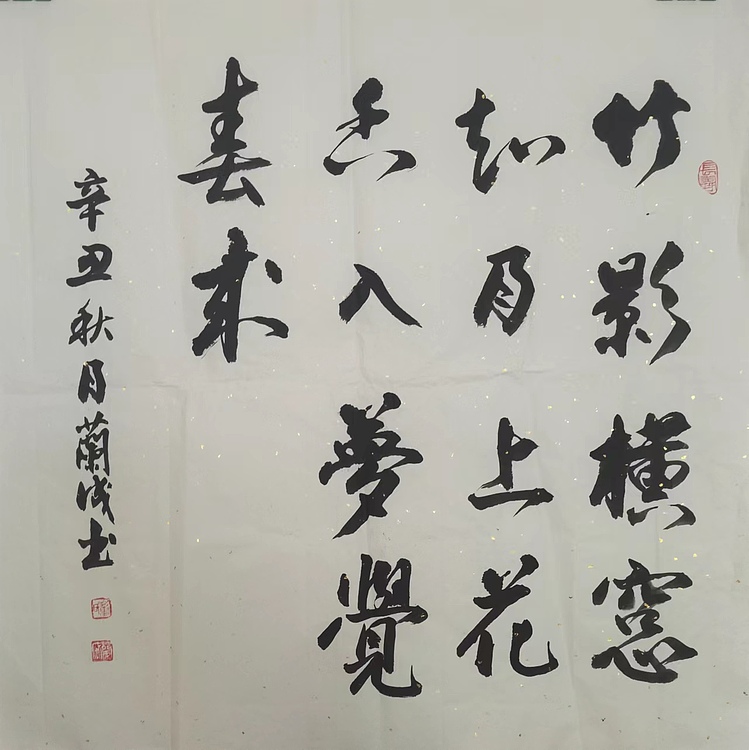 竹影橫窓
知月上花
香入夢覺
春來
辛丑秋月蘭成书